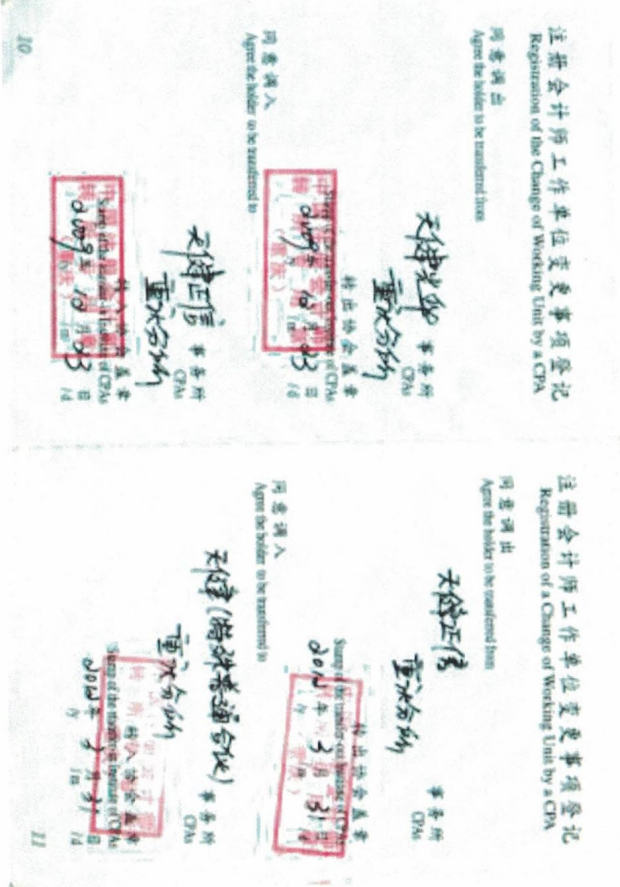 注册会计师工作单位变更事项登记
Registration of the Change of Working Unit by a CPA
同意调出
Agree the holder to be transferred from
天健光华
事务所
CPAs
重庆分所
转出协会盖章
Stamp of the transfer-out Institute of CPAs
2009年 10月 23日
/y /m /d
同意调入
Agree the holder to be transferred to
天健正信
事务所
CPAs
重庆分所
转入协会盖章
Stamp of the transfer-in Institute of CPAs
2009年 10月 23日
/y /m /d
10
注册会计师工作单位变更事项登记
Registration of a Change of Working Unit by a CPA
同意调出
Agree the holder to be transferred from
天健正信
事务所
CPAs
重庆分所
转出协会盖章
Stamp of the transfer-out Institute of CPAs
年 3月 31日
/y /m /d
同意调入
Agree the holder to be transferred to
天健(特殊普通合伙)
事务所
CPAs
重庆分所
转入协会盖章
Stamp of the transfer-in Institute of CPAs
年 3月 31日
/y /m /d
11